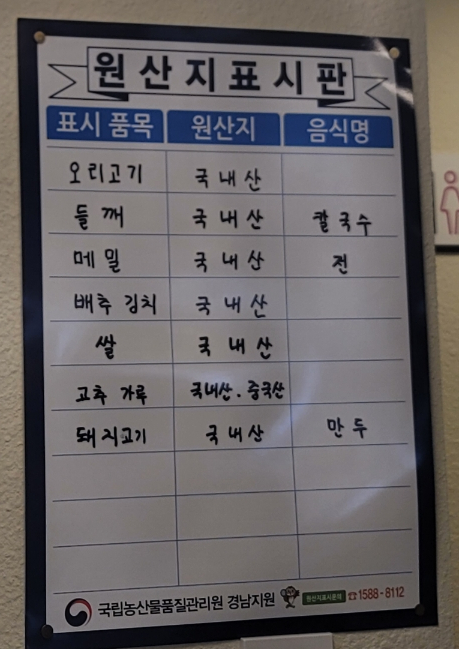 원산지표시판
표시 품목 원산지 음식명
오리고기 국내산
들깨 국내산 칼국수
메밀 국내산 전
배추 김치 국내산
쌀 국내산
고추 가루 국내산. 중국산
돼지고기 국내산 만두
국립농산물품질관리원 경남지원 원산지표시문의 ☎1588-8112